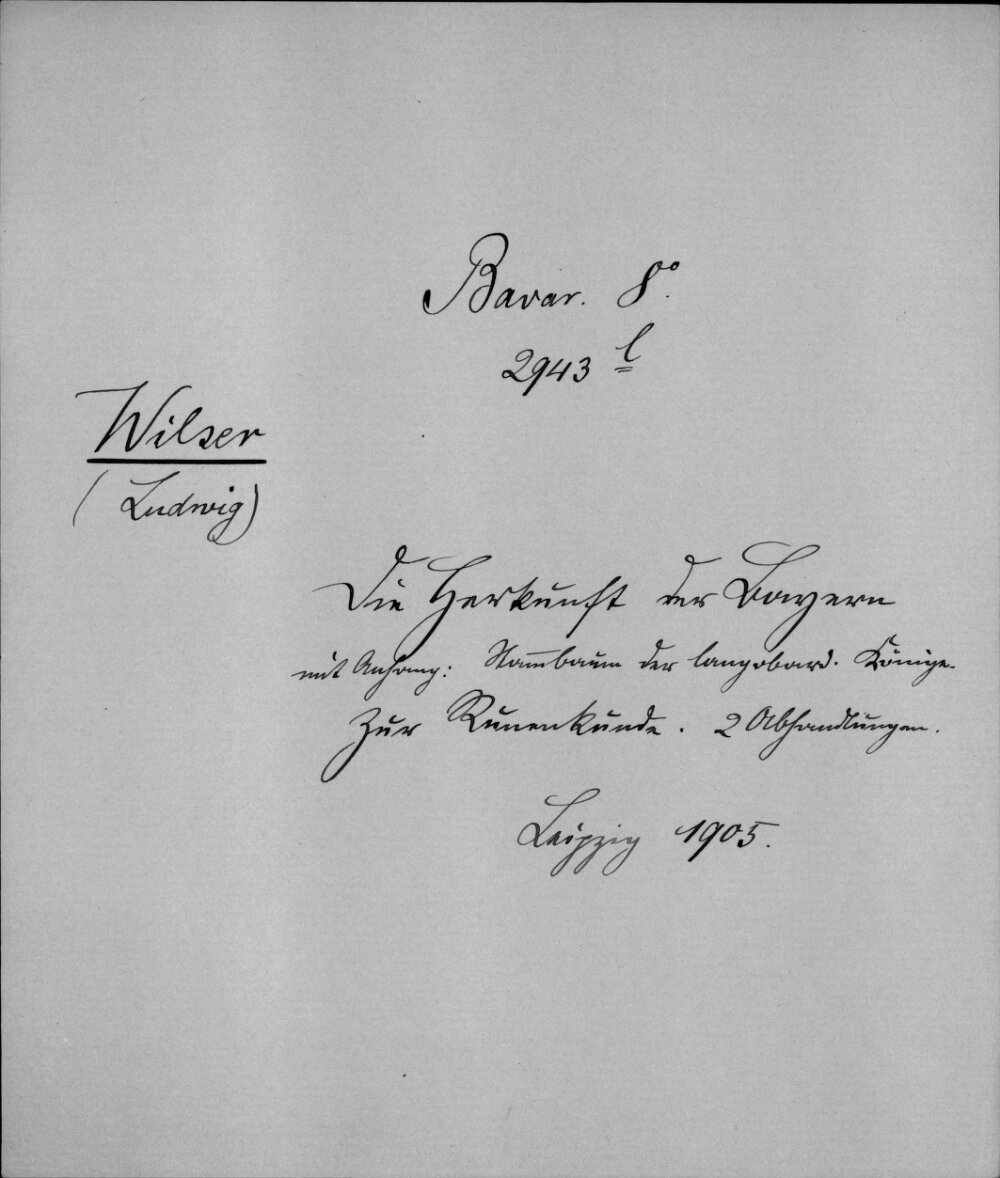 Bavar. 8°.
2943 l
Wilser
(Ludwig)
Die Herkunft der Bayern
mit Anhang: Stammbaum der langobard. Könige.
Zur Runenkunde. 2 Abhandlungen.
Leipzig 1905.